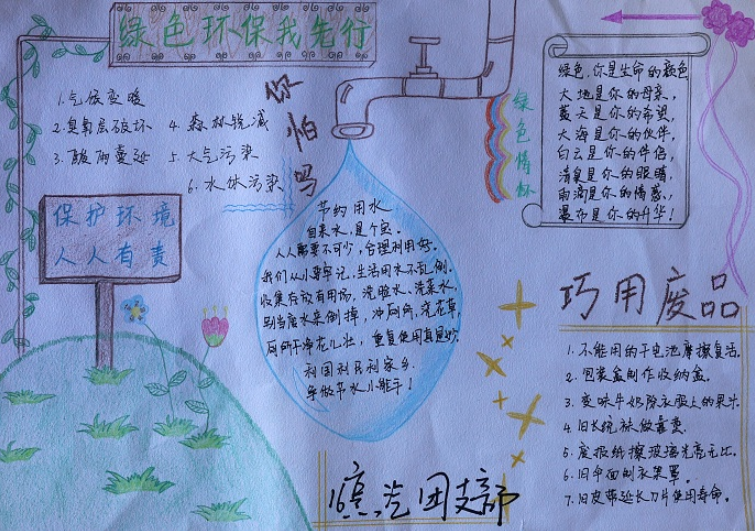 绿色环保我先行
你怕吗
1.气候变暖
2.臭氧层破坏
3.酸雨蔓延
4.森林锐减
5.大气污染
6.水体污染
保护环境
人人有责
节约用水
自来水,是个宝。
人人需要不可少,合理利用好。
我们从小要牢记,生活用水不乱倒。
收集存放有用场,洗脸水、洗菜水,
别当废水来倒掉,冲厕所,浇花草,
厕所干净花儿壮,重复使用真是妙。
利国利民利家乡。
争做节水小能手!
绿色情怀
绿色,你是生命的颜色
大地是你的母亲,
蓝天是你的希望,
大海是你的伙伴,
白云是你的伴侣,
清泉是你的眼睛,
雨滴是你的情感,
瀑布是你的升华!
巧用废品
1.不能用的干电池摩擦复活。
2.包装盒制作收纳盒。
3.变味牛奶除衣服上的果汁。
4.旧长统袜做
5.废报纸擦玻璃光亮无比。
6.旧伞面制衣架罩。
7.旧皮带延长刀片使用寿命。
团支部